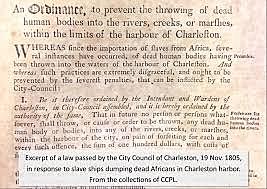 An Ordinance, to prevent the throwing of dead
human bodies into the rivers, creeks, or marſhes,
within the limits of the harbour of Charleſton.
WHEREAS ſince the importation of ſlaves from Africa, ſeve-
ral inſtances have occurred, of dead human bodies having
been thrown into the waters of the harbour of Charleſton. And
whereas ſuch practices are extremely diſgraceful, and ought to be
prevented by the ſevereſt penalties, that can be inflicted by the
City-Council:
Preamble.
I. Be it therefore ordained by the Intendant and Wardens of
Charleſton, in City-Council aſſembled, and it is hereby ordained by the
authority of the ſame, That in future no perſon or perſons what-
ſoever, ſhall throw, or cauſe or order to be thrown, any dead hu-
man body, or bodies, into any of the rivers, creeks, or marſhes,
within the harbour of the city, on pain of forfeiting for each and
every ſuch offence, the ſum of
Excerpt of a law passed by the City Council of Charleston, 19 Nov. 1805,
in response to slave ships dumping dead Africans in Charleston harbor.
From the collections of CCPL.